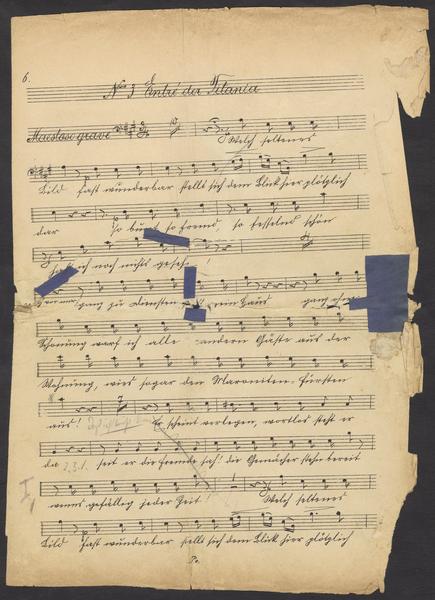 6.
No 3 Entré der Titania
Maestoso grave
Welch seltenes
Bild fast wunderbar stellt sich dem Blick hier plötzlich
dar so bunt so fremd, so fesselnd schön
hab ich noch nichts gesehn!
ganz zu Diensten mein Haus ganz ohne
Schonung warf ich alle andern Gäste aus der
Wohnung, wies sogar den Maroniten-Fürsten
aus! Er scheint verlegen, wortlos steht er
da seit er die Fremde sah! die Gemächer stehn bereit
wenns gefällig jeder Zeit! Welch seltenes
Bild fast wunderbar stellt sich dem Blick hier plötzlich